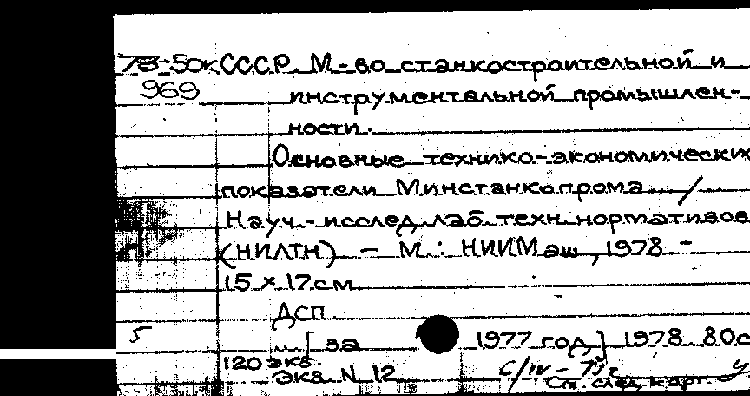 78-50к СССР. М-во станкостроительной и
969 инструментальной промышлен-
ности.
Основные технико-экономически
показатели Минстанкопрома /
Науч.-исслед. лаб. техн. нормативов
(НИЛТН) - М.: НИИМаш, 1978 -
15 x 17 см
ДСП
5 [за 1977 год] 1978 80с
120 экз.
Экз. N 12
См. след. карт.